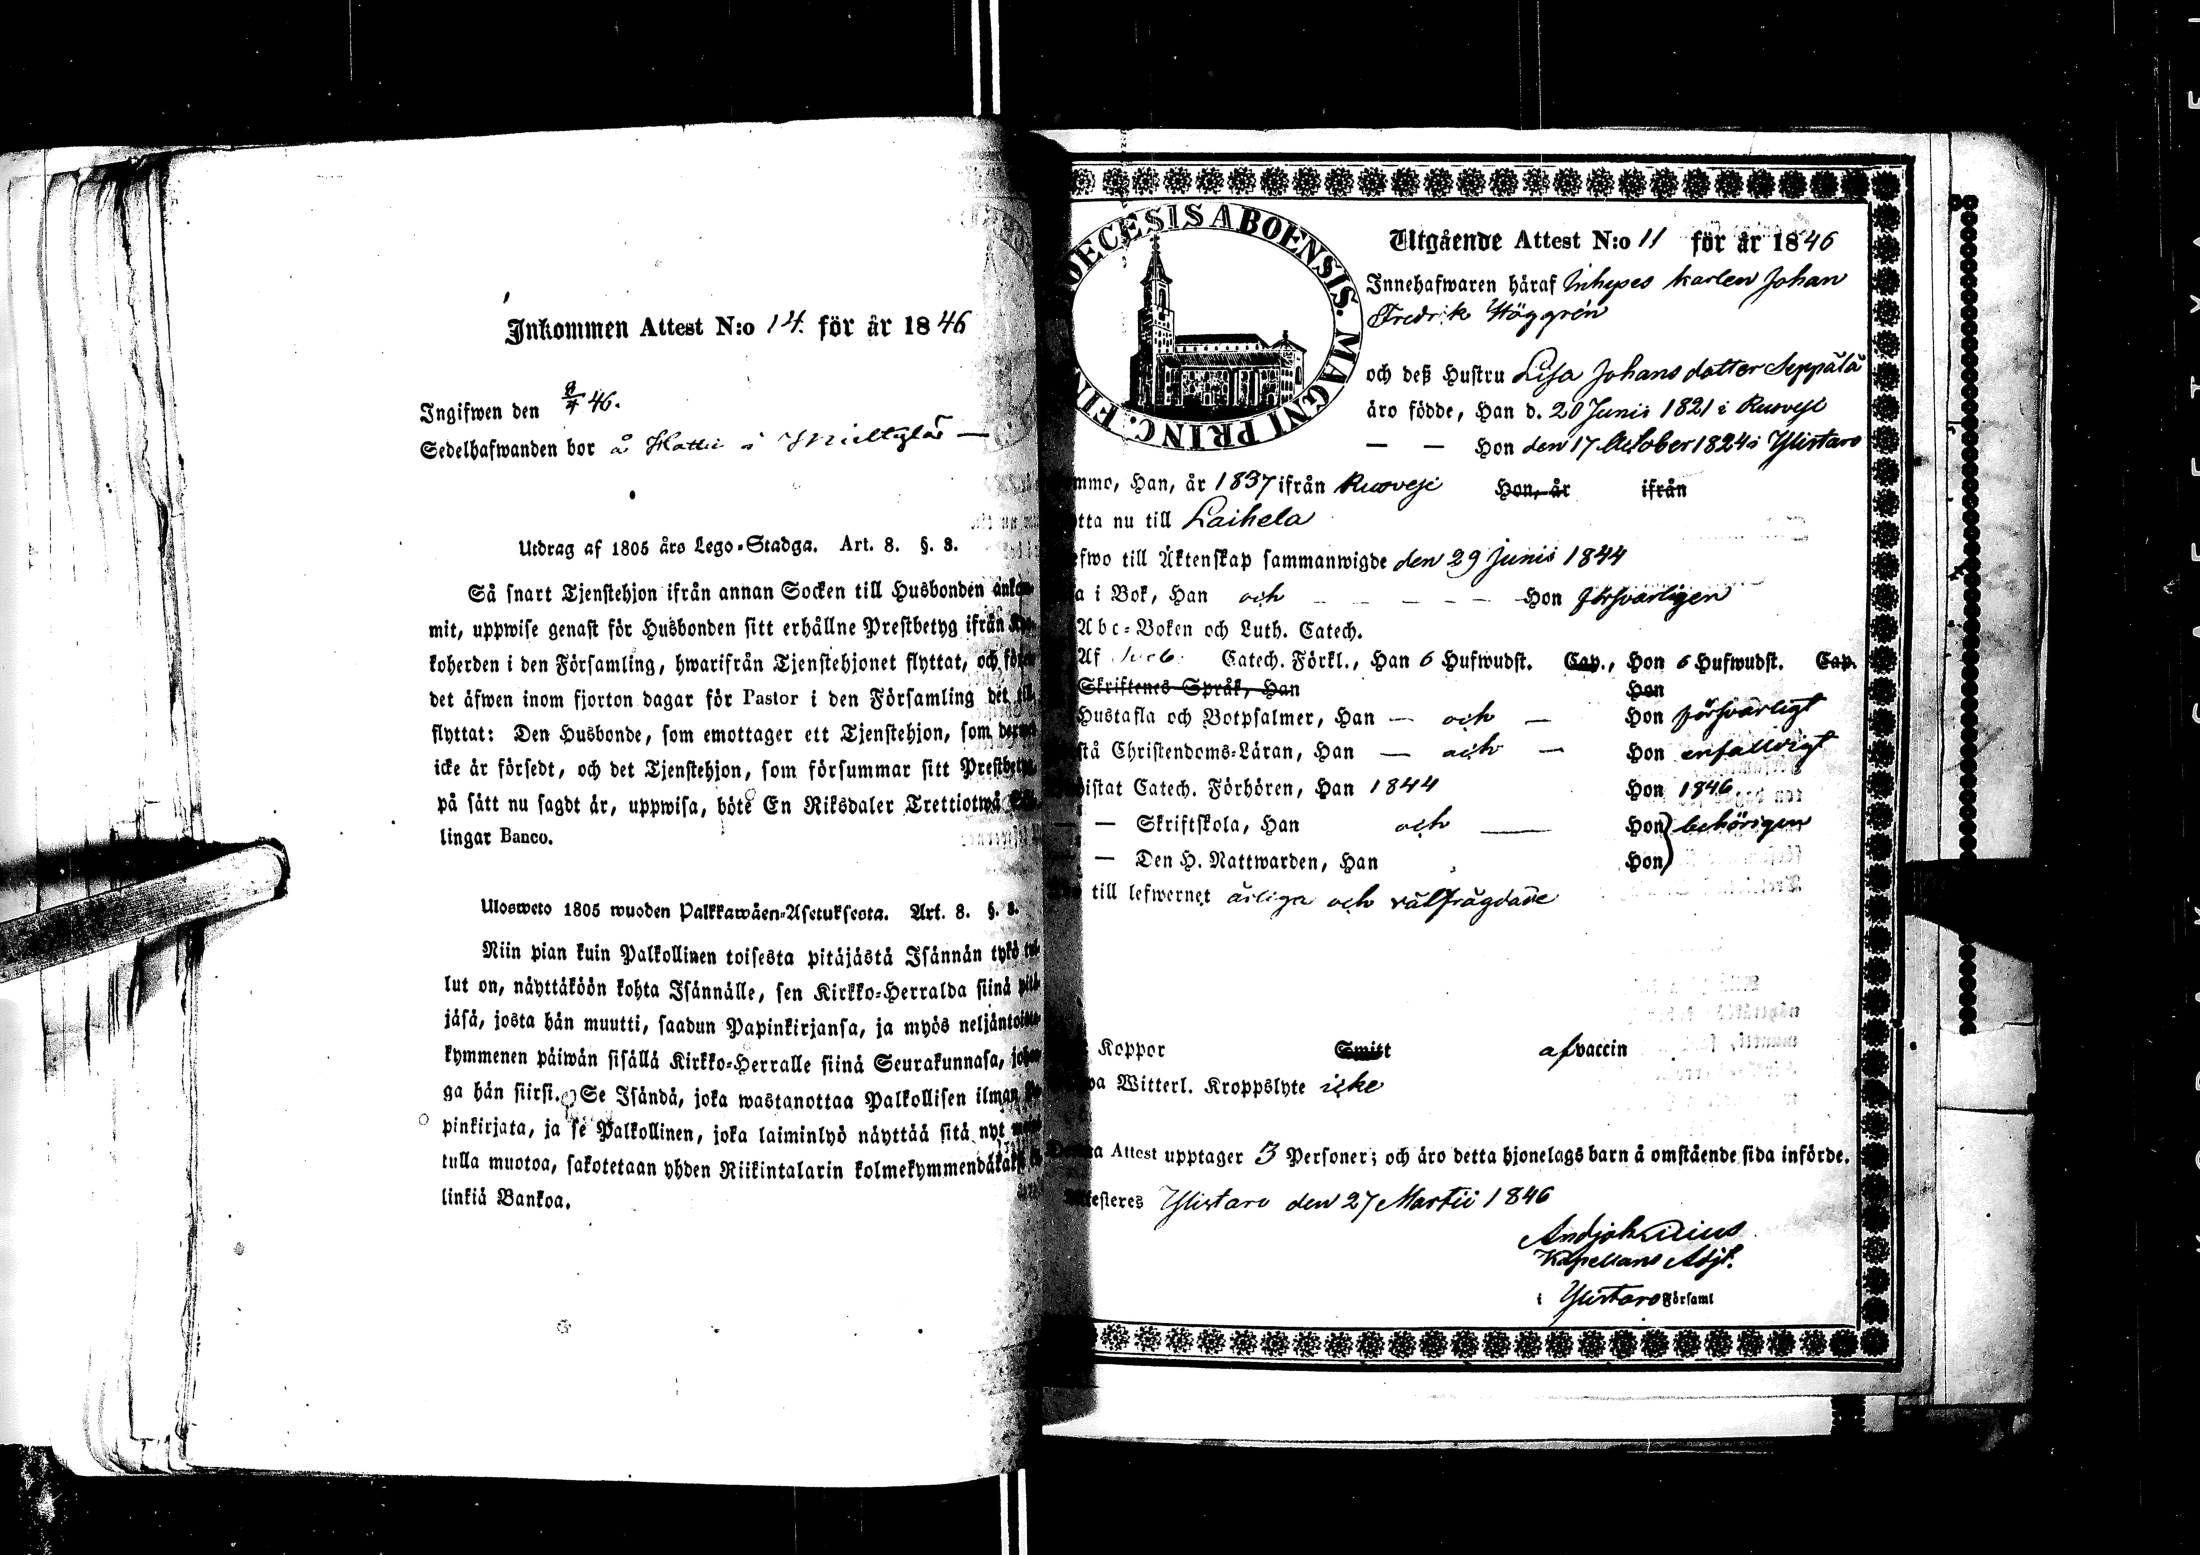 Inkommen Attest N:o 14. för år 1846
Ingifwen den 8/4 46.
Sedelhafwanden bor å
Utdrag af 1805 års Lego-Stadga. Art. 8. §. 8.
Så snart Tjenstehjon ifrån annan Socken till Husbonden ankom-
mit, uppwise genast för Husbonden sitt erhållne Prestbetyg ifrån Kyr-
koherden i den Församling, hwarifrån Tjenstehjonet flyttat, och före
det äfwen inom fjorton dagar för Pastor i den Församling det
flyttat: Den Husbonde, som emottager ett Tjenstehjon, som dermed
icke är försedt, och det Tjenstehjon, som försummar sitt Prestbetyg,
på sätt nu sagdt är, uppwisa, böte En Riksdaler Trettiotwå
lingar Banco.
Ulosweto 1805 wuoden Palkkawäen-Asetuksesta. Art. 8. §. 8.
Niin pian kuin Palkollinen toisesta pitäjästä Isännän tykö tul-
lut on, näyttäköön kohta Isännälle, sen Kirkko-Herralda siinä pitä-
jäsä, josta hän muutti, saadun Papinkirjansa, ja myös neljäntoista-
kymmenen päiwän sisällä Kirkko-Herralle siinä Seurakunnasa, johon-
ga hän siirsi. Se Isändä, joka wastanottaa Palkollisen ilman Pa-
pinkirjata, ja se Palkollinen, joka laiminlyö näyttää sitä nyt
tulla muotoa, sakotetaan yhden Riikintalarin kolmekymmendäkaksi
linkiä Bankoa.
DIOECESIS ABOENSIS. MAGNI PRINC. FIN
Utgående Attest N:o 11 för år 1846
Innehafwaren häraf Inhyses karlen Johan
Fredrik Häggrén
och deß Hustru Lisa Johansdotter Seppälä
äro födde, Han d. 20 Junii 1821 i Ruovesi
— — Hon den 17 October 1824 i Ylistaro
mmo, Han, år 1837 ifrån Ruovesi Hon, år ifrån
tta nu till Laihela
efwo till Äktenskap sammanwigde den 29 Junii 1844
a i Bok, Han och — — — — — Hon försvarligen
Abc-Boken och Luth. Catech.
Af Catech. Förkl., Han 6 Hufwudst. Cap., Hon 6 Hufwudst. Cap.
Skriftenes Språk, Han Hon
Hustafla och Botpsalmer, Han — och — Hon försvarligt
stå Christendoms-Läran, Han — och — Hon enfalldigt
istat Catech. Förhören, Han 1844 Hon 1846
— — Skriftskola, Han och — Hon behörigen
— Den H. Nattwarden, Han Hon
till lefwernet ärliga och välfrägdade
Koppor Smitt af vaccin
pa Witterl. Kroppslyte icke
Denna Attest upptager 3 Personer; och äro detta hjonelags barn å omstående sida införde.
testeres Ylistaro den 27 Martii 1846
Kapellans Adjt.
i Ylistaro Församl